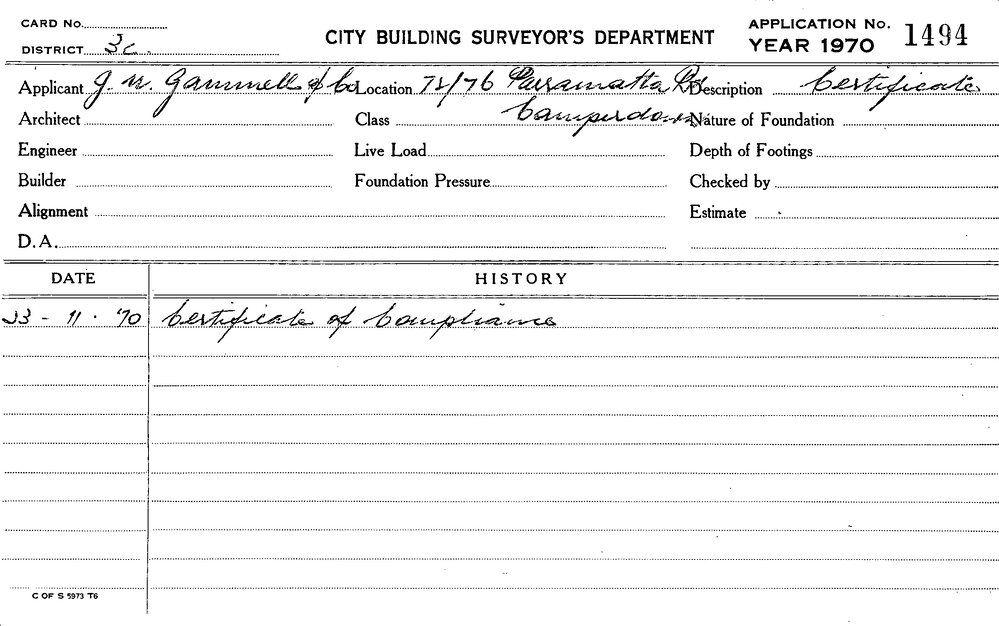 CARD No.
DISTRICT 3c.
CITY BUILDING SURVEYOR'S DEPARTMENT
APPLICATION No. 1494
YEAR 1970
Applicant J. W. Gammell & Co Location 72/76 Parramatta Rd Description Certificate
Architect Class Camperdown Nature of Foundation
Engineer Live Load Depth of Footings
Builder Foundation Pressure Checked by
Alignment Estimate
D.A.
DATE HISTORY
23 - 11 · '70 Certificate of Compliance
C OF S 5973 T6